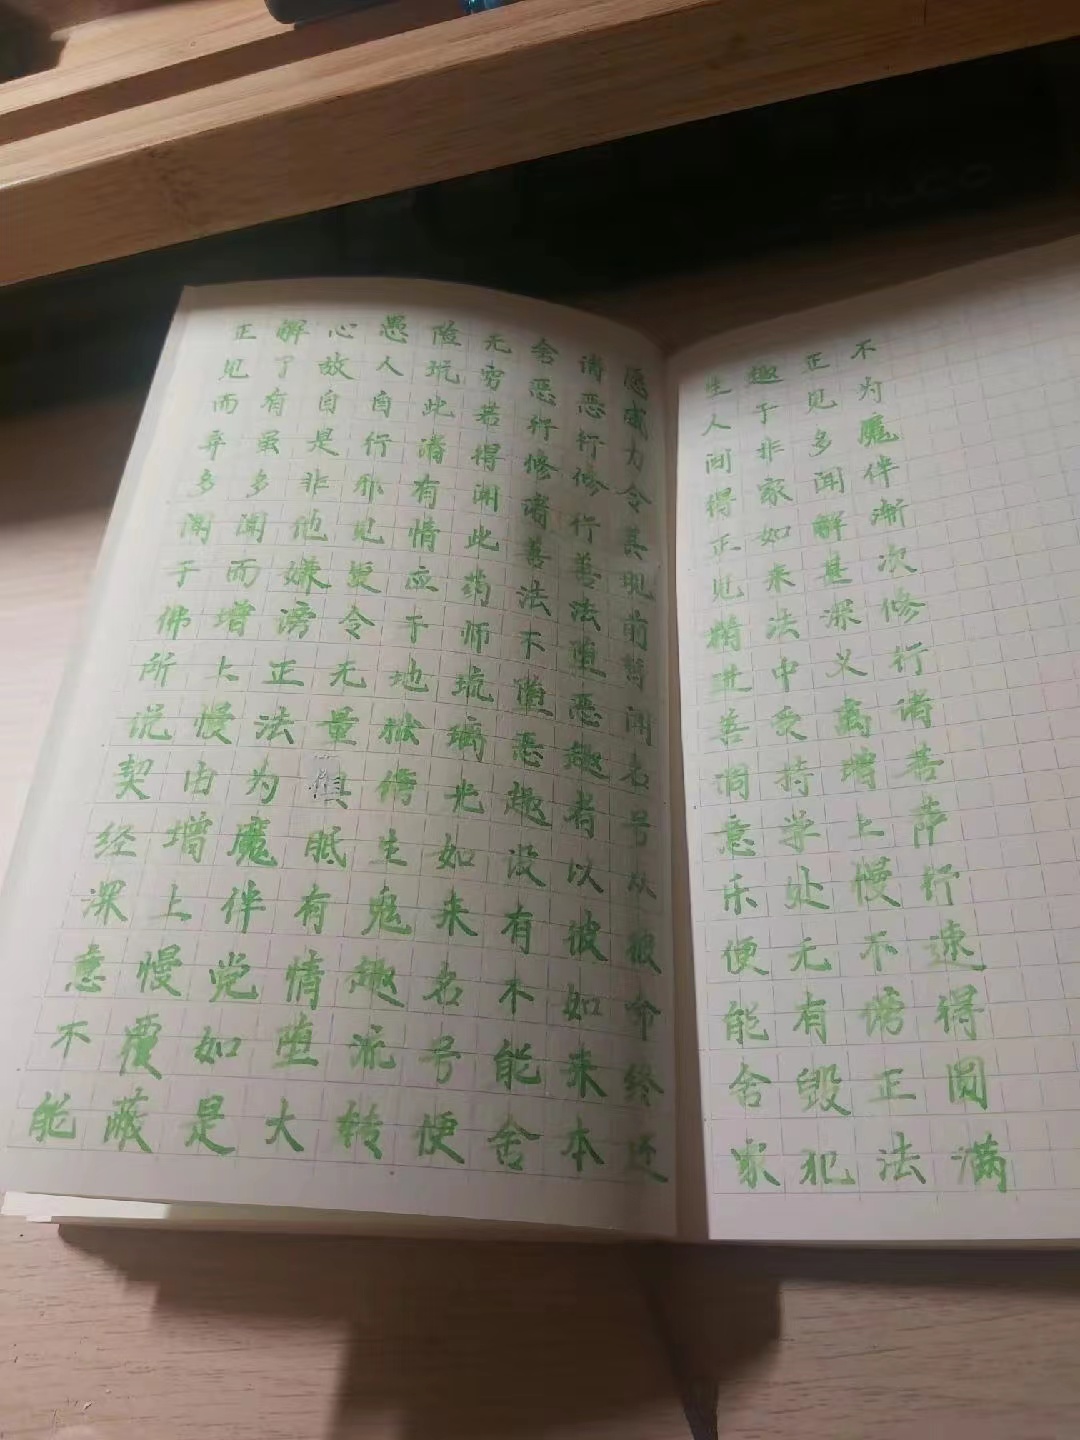 正见而弃多闻于佛所说契经深意不能
解了有虽多闻而增上慢由增上慢覆蔽
心故自是非他嫌谤正法为魔伴党如是
愚人自行邪见复令无量俱胝有情堕大
险坑此诸有情应于地狱傍生鬼趣流转
无穷若得闻此药师琉璃光如来名号便
舍恶行修诸善法不堕恶趣设有不能舍
诸恶行修行善法堕恶趣者以彼如来本
愿威力令其现前暂闻名号从彼命终还
生人间得正见精进善调意乐便能舍家
趣于非家如来法中受持学处无有毁犯
正见多闻解甚深义离增上慢不谤正法
不为魔伴渐次修行诸菩萨行速得圆满